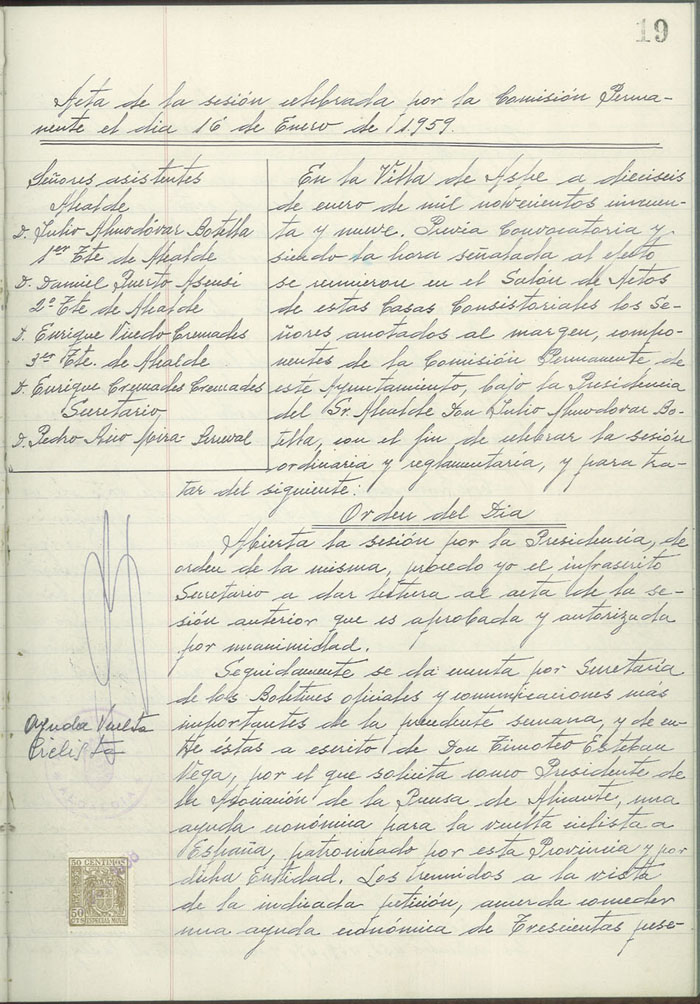 19
Acta de la sesión celebrada por la Comisión Perma-
nente el dia 16 de Enero de 1.959.
Señores asistentes
Alcalde
D. Julio Almodóvar Botella
1er Tte de Alcalde
D. Daniel Puerto Asensi
2º Tte de Alcalde
D. Enrique Vicedo Cremades
3er Tte. de Alcalde
D. Enrique Cremades Cremades
Secretario
D. Pedro Rico Mira-Perceval
En la Villa de Aspe a dieciseis
de enero de mil novecientos cincuen-
ta y nueve. Previa Convocatoria y
siendo la hora señalada al efecto
se reunieron en el Salón de Actos
de estas Casas Consistoriales los Se-
ñores anotados al margen, compo-
nentes de la Comisión Permanente de
este Ayuntamiento, bajo la Presidencia
del Sr. Alcalde Don Julio Almodovar Bo-
tella, con el fin de celebrar la sesión
ordinaria y reglamentaria, y para tra-
tar del siguiente:
Orden del Dia
Abierta la sesión por la Presidencia, de
orden de la misma, procedo yo el infrascrito
Secretario a dar lectura al acta de la se-
sión anterior que es aprobada y autorizada
por unanimidad.
Seguidamente se da cuenta por Secretaría
de los Boletines oficiales y comunicaciones más
importantes de la precedente semana, y de en-
tre éstas a escrito de Don Timoteo Esteban
Vega, por el que solicita como Presidente de
la Asociación de la Prensa de Alicante, una
ayuda económica para la vuelta ciclista a
España, patrocinado por esta Provincia y por
dicha Entidad. Los reunidos a la vista
de la indicada petición, acuerda conceder
una ayuda económica de Trescientas pese-
Ayuda Vuelta
Ciclista
50 CENTIMOS
50
CTS
ESPECIAL MOVIL